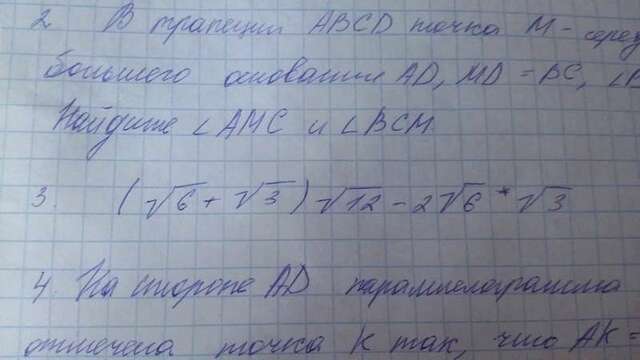 2. В трапеции ABCD точка M - серед
большего основания AD, MD = BC, ∠B
Найдите ∠AMC и ∠BCM
3. (√6 + √3)√12 - 2√6 * √3
4. На стороне AD параллелограмма
отмечена точка K так, что AK =